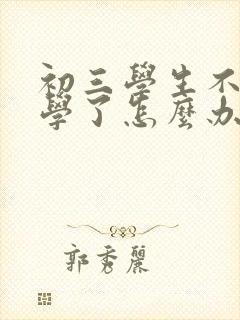 初三學生不
學了怎麼办
郭秀麗